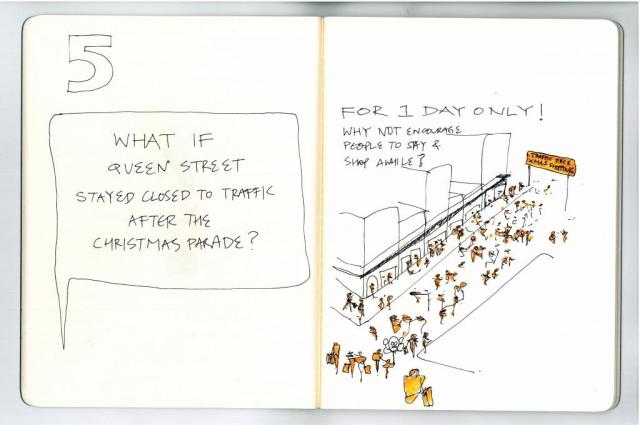 5
WHAT IF
QUEEN STREET
STAYED CLOSED TO TRAFFIC
AFTER THE
CHRISTMAS PARADE?
FOR 1 DAY ONLY!
WHY NOT ENCOURAGE
PEOPLE TO STAY &
SHOP AWHILE?
TRAFFIC FREE
XMAS SHOPPING